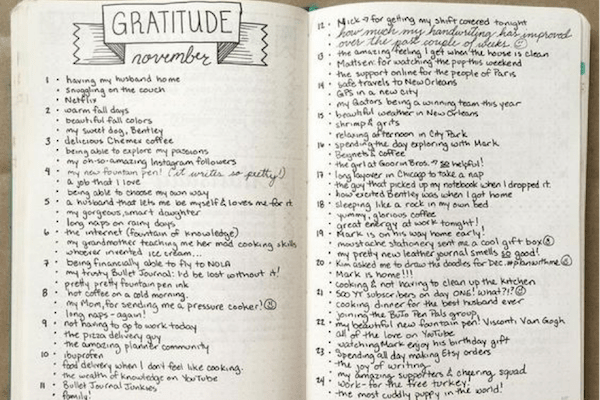 GRATITUDE
november
1 • having my husband home
• snuggling on the couch
• Netflix
2 • warm fall days
• beautiful fall colors
• my sweet dog, Bentley
3 • delicious Chemex coffee
• being able to explore my passions
• my oh-so-amazing Instagram followers
4 • my new fountain pen! (it writes so pretty!)
• a job that I love
• being able to choose my own way
5 • a husband that lets me be myself & loves me for it
• my gorgeous, smart daughter
• long naps on rainy days
6 • the internet (fountain of knowledge)
• my grandmother teaching me her mad cooking skills
• whoever invented ice cream...
7 • being financially able to fly to NOLA
• my trusty Bullet Journal: I'd be lost without it!
• pretty pretty fountain pen ink
8 • hot coffee on a cold morning.
• my Mom, for sending me a pressure cooker!
• long naps - again!
9 • not having to go to work today
• the pizza delivery guy
• the amazing planner community
10 • ibuprofen
• food delivery when I don't feel like cooking.
• the wealth of knowledge on YouTube
11 • Bullet Journal Junkies
• family!
12 • Mick → for getting my shift covered tonight
• how much my handwriting has improved
over the past couple of weeks
13 • the amazing feeling I get when the house is clean
• Mattsen: for watching the pup this weekend
• the support online for the people of Paris
14 • safe travels to New Orleans
• GPS in a new city
• my Gators being a winning team this year
15 • beautiful weather in New Orleans
• shrimp & grits
• relaxing afternoon in City Park
16 • spending the day exploring with Mark
• Beignets & coffee
• the girl at Goorin Bros. → so helpful!
17 • long layover in Chicago to take a nap
• the guy that picked up my notebook when I dropped it.
• how excited Bentley was when I got home
18 • sleeping like a rock in my own bed
• yummy, glorious coffee
• great energy at work tonight!
19 • Mark is on his way home early!
• moustache stationery sent me a cool gift box
• my pretty new leather journal smells so good!
20 • Kim asked me to draw the doodles for Dec. #planwithme
• Mark is home!!!
• cooking & not having to clean up the kitchen
21 • 500 YT subscribers on day ONE! what?!?
• cooking dinner for the best husband ever
• joining the BuJo Pen Pals group
22 • my beautiful new fountain pen! Visconti Van Gogh
• all of the love on YouTube
• watching Mark enjoy his birthday gift
23 • Spending all day making Etsy orders
• the joy of writing
• my amazing supporters & cheering squad
24 • Work - for the free turkey!
• the most cuddly puppy in the world!